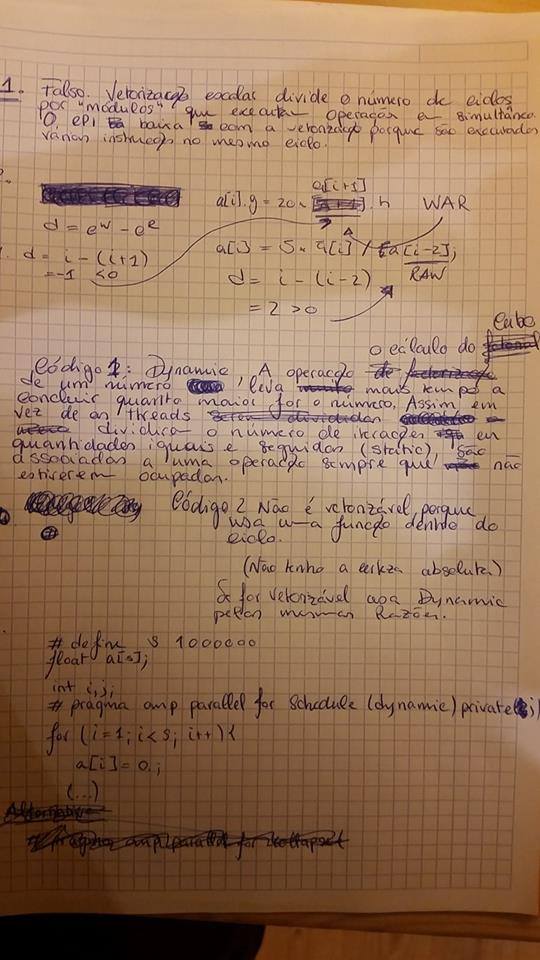 1. Falso. Vetorização escalar divide o número de ciclos
por "módulos" que executam operações em simultâneo.
O CPI baixa com a vetorização porque são executadas
várias instruções no mesmo ciclo.
a[i+1]
a[i].g = 20 * .h WAR
d = eW - eR
a[i] = 5 * a[i] / a[i-2];
d = i - (i+1)
RAW
= -1 < 0
d = i - (i-2)
= 2 > 0
Cubo
o cálculo do
Código 1: Dynamic A operação
de um número leva mais tempo a
concluir quanto maior for o número. Assim em
vez de as threads
dividirem o número de iterações em
quantidades iguais e seguidas (static), são
associadas a uma operação sempre que não
estiverem ocupadas.
Código 2 Não é vetorizável, porque
usa uma função dentro do
ciclo.
(Não tenho a certeza absoluta)
Se for vetorizável usa Dynamic
pelas mesmas Razões.
# define S 1000000
float a[s];
int i,j;
# pragma omp parallel for Schedule (dynamic) private(i)
for (i=1; i<s; i++) {
a[i]=0.;
(...)